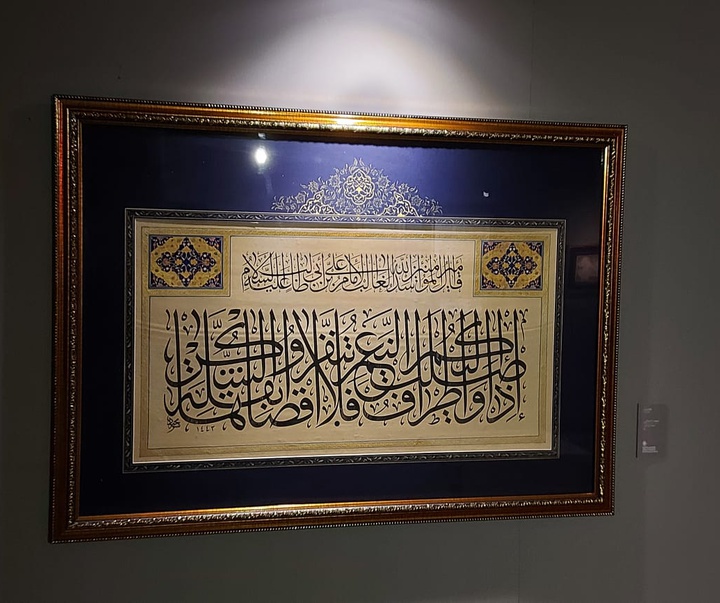 قال أمير المؤمنين أسد الله الغالب الإمام علي بن أبي طالب عليه السلام
إذا وصلت إليكم أطراف النعم فلا تنفروا أقصاها بقلة الشكر
١٤٤٢